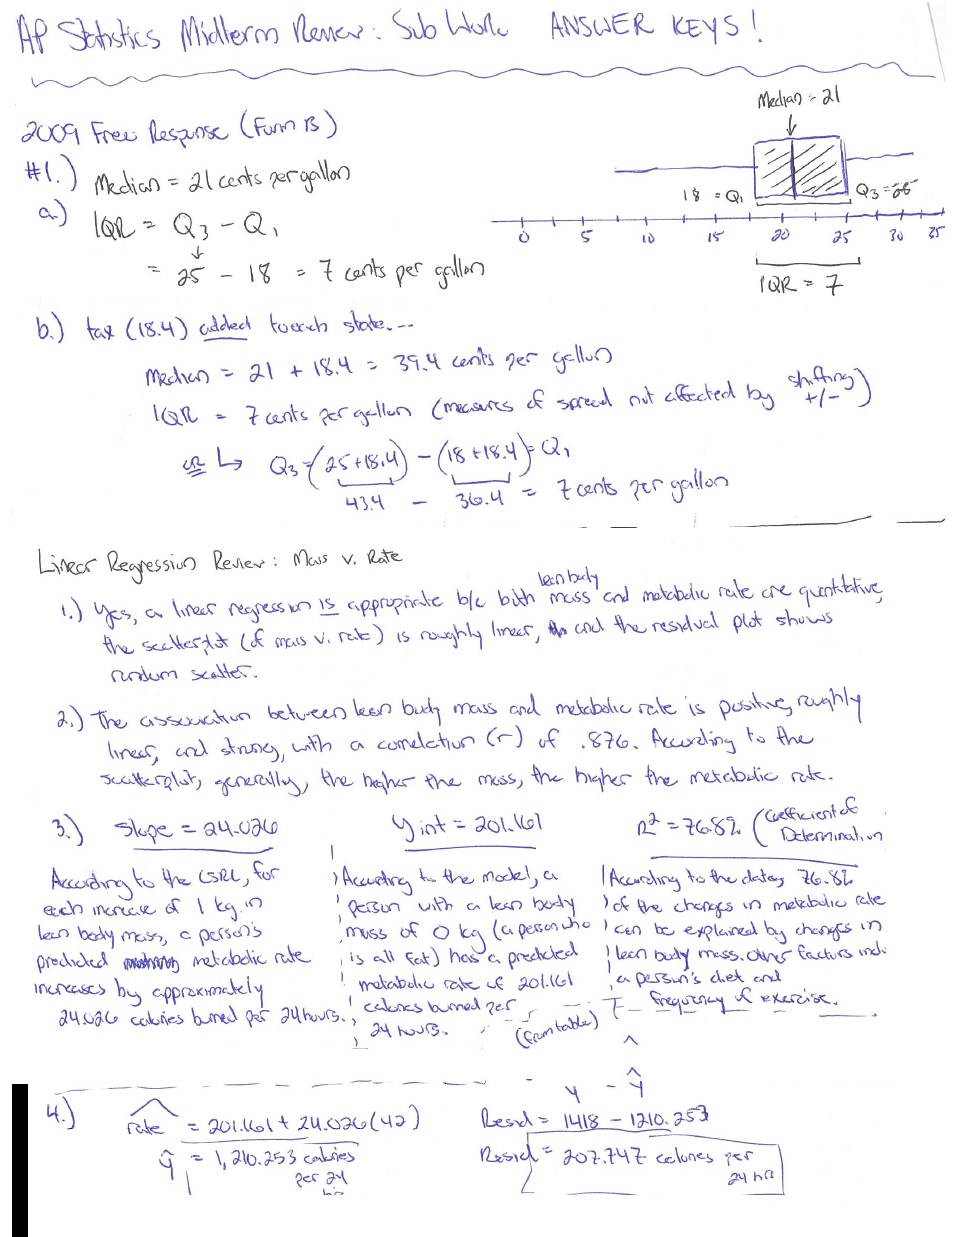 AP Statistics Midterm Review: Sub Work ANSWER KEYS!
2009 Free Response (Form B)
#1.) Median = 21 cents per gallon
a.) IQR = Q3 - Q1
= 25 - 18 = 7 cents per gallon
Median = 21
18 = Q1
Q3 = 25
0 5 10 15 20 25 30 35
IQR = 7
b.) tax (18.4) added to each state...
Median = 21 + 18.4 = 39.4 cents per gallon
IQR = 7 cents per gallon (measures of spread not affected by shifting +/-)
or ↳ Q3 = (25+18.4) - (18+18.4) = Q1
43.4 - 36.4 = 7 cents per gallon
Linear Regression Review: Mass v. Rate
1.) Yes, a linear regression is appropriate b/c both lean body mass and metabolic rate are quantitative,
the scatterplot (of mass v. rate) is roughly linear, and the residual plot shows
random scatter.
2.) The association between lean body mass and metabolic rate is positive, roughly
linear, and strong, with a correlation (r) of .876. According to the
scatterplot, generally, the higher the mass, the higher the metabolic rate.
3.) Slope = 24.026
According to the LSRL, for
each increase of 1 kg. in
lean body mass, a person's
predicted metabolic rate
increases by approximately
24.026 calories burned per 24 hours.
y int = 201.161
According to the model, a
person with a lean body
mass of 0 kg (a person who
is all fat) has a predicted
metabolic rate of 201.161
calories burned per
24 hours.
R² = 76.8% (Coefficient of
Determination
According to the data, 76.8%
of the changes in metabolic rate
can be explained by changes in
lean body mass. Other factors incl.
a person's diet and
frequency of exercise.
(from table)
4.) rate = 201.161 + 24.026(42)
ŷ = 1,210.253 calories
per 24
hrs
y - ŷ
Resid = 1418 - 1210.253
Resid = 207.747 calories per
24 hrs